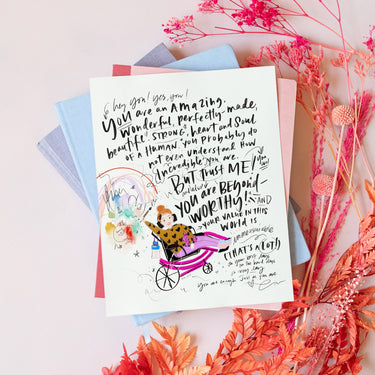 hey you! yes, you!
YOU are an AMAZING,
wonderful, perfectly-made,
beautiful, STRONG, heart and Soul
OF A HUMAN. You probably do
not even understand How
incredible you are.
BUT TRUST ME!
YOU ARE BEYOND
WORTHY! AND
YOUR VALUE IN THIS
WORLD IS
immeasurable
(THAT'S A LOT!)
on your best days
on the hard days
on every day
You are enough Just as You are